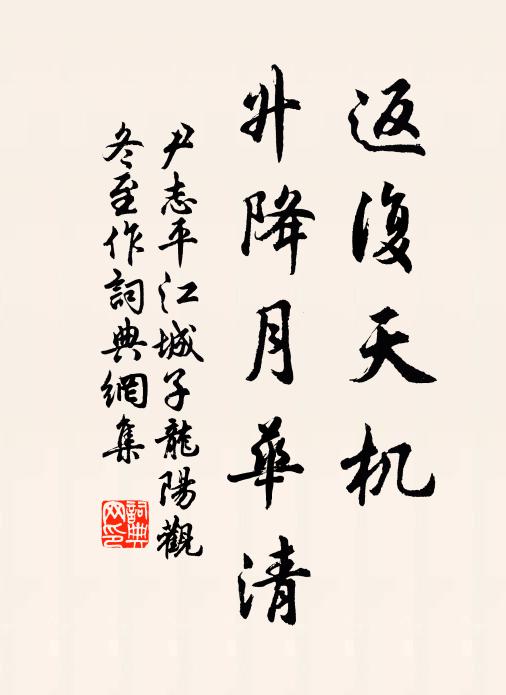 返復天机
升降月華清
尹志平江城子龍陽觀
冬至作詞典網集
詞典
网印